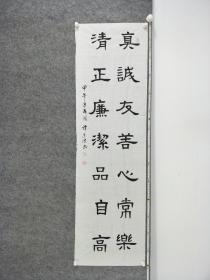 真誠友善心常樂
清正廉潔品自高
甲午